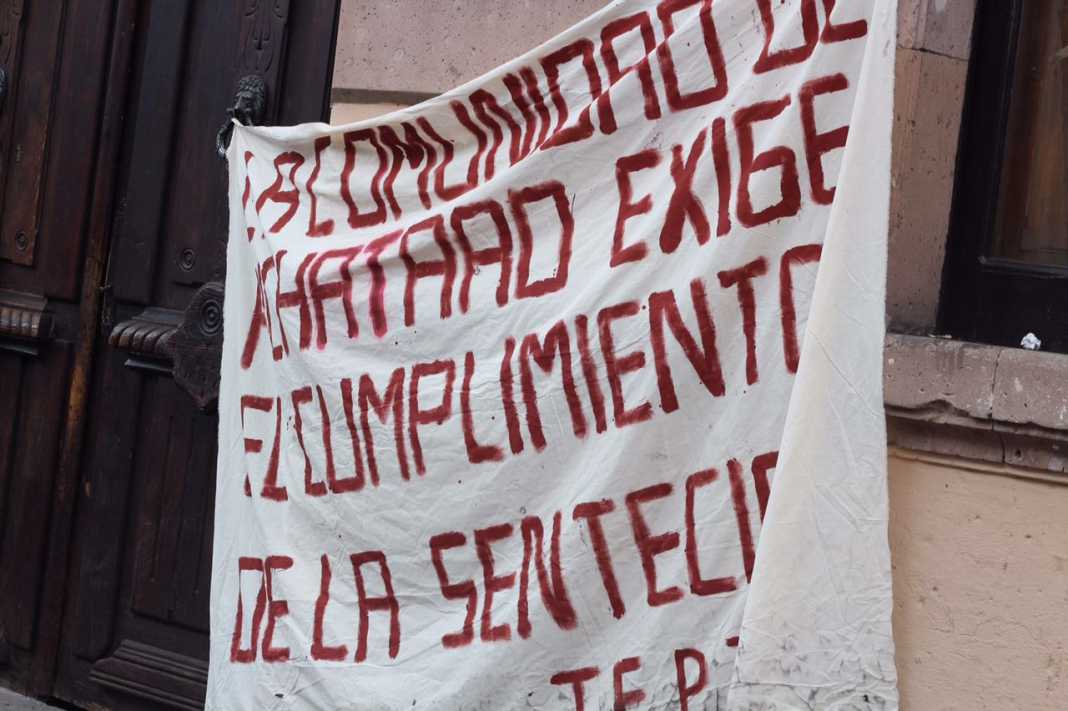 LA COMUNIDAD DE
EXIGE
EL CUMPLIMIENTO
DE LA SENTECIA
TE P